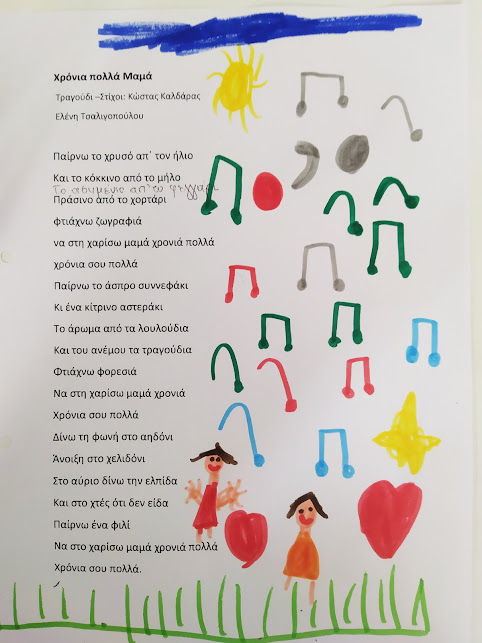 Χρόνια πολλά Μαμά
Τραγούδι –Στίχοι: Κώστας Καλδάρας
Ελένη Τσαλιγοπούλου
Παίρνω το χρυσό απ΄ τον ήλιο
Και το κόκκινο από το μήλο
Το ασημένιο απ'το φεγγάρι
Πράσινο από το χορτάρι
Φτιάχνω ζωγραφιά
να στη χαρίσω μαμά χρονιά πολλά
χρόνια σου πολλά
Παίρνω το άσπρο συννεφάκι
Κι ένα κίτρινο αστεράκι
Το άρωμα από τα λουλούδια
Και του ανέμου τα τραγούδια
Φτιάχνω φορεσιά
Να στη χαρίσω μαμά χρονιά
Χρόνια σου πολλά
Δίνω τη φωνή στο αηδόνι
Άνοιξη στο χελιδόνι
Στο αύριο δίνω την ελπίδα
Και στο χτές ότι δεν είδα
Παίρνω ένα φιλί
Να στο χαρίσω μαμά χρονιά πολλά
Χρόνια σου πολλά.